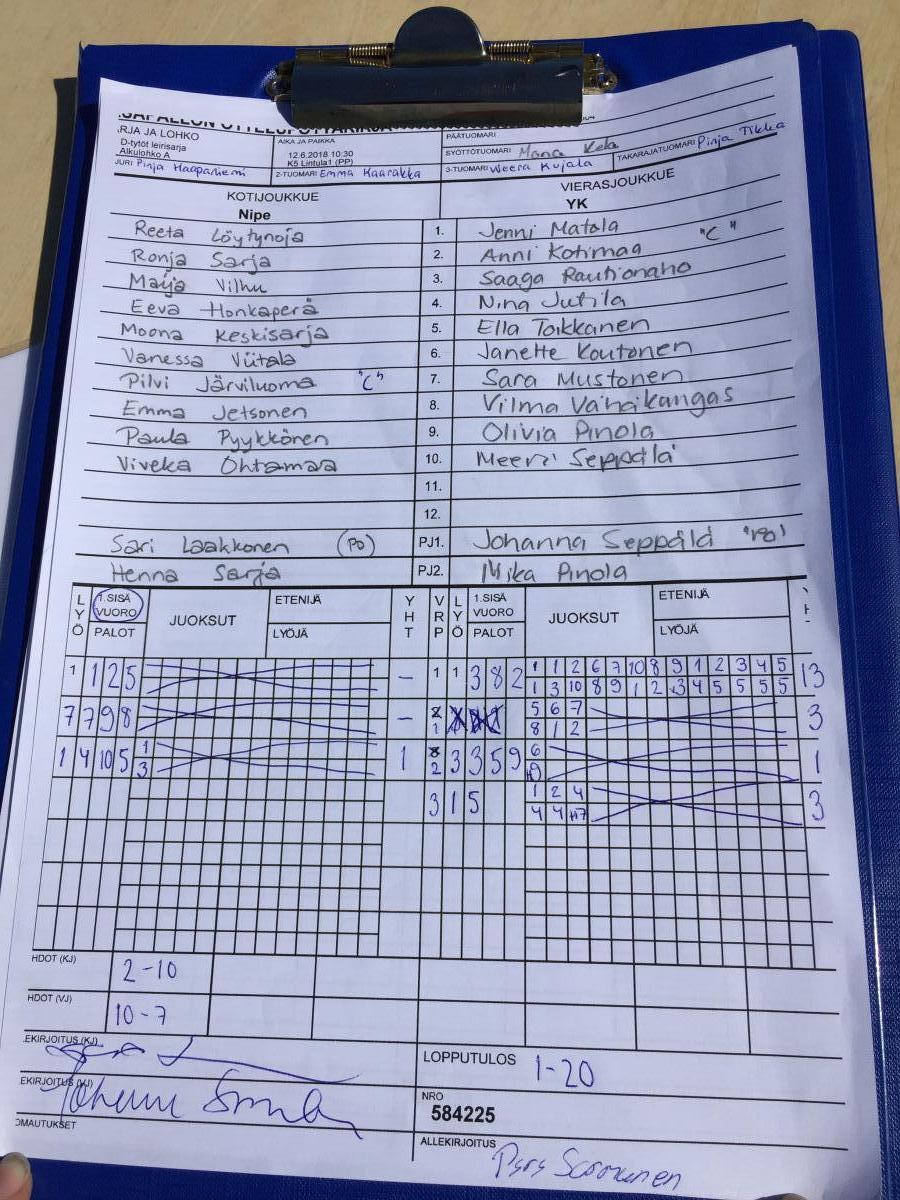 RJA JA LOHKO
D-tytöt leirisarja
Alkulohko A
AIKA JA PAIKKA
12.6.2018 10:30
K5 Lintula1 (PP)
PÄÄTUOMARI
SYÖTTÖTUOMARI Mana Kela
TAKARAJATUOMARI Pinja Tikka
JURI Pinja Haapaniemi
2-TUOMARI Emma Kaarakka
3-TUOMARI Weera Kujala
KOTIJOUKKUE VIERASJOUKKUE
Nipe YK
Reeta Löytynoja 1. Jenni Matala "C"
Ronja Sarja 2. Anni Kotimaa
Maija Vilhu 3. Saaga Rautionaho
Eeva Honkaperä 4. Nina Jutila
Moona Keskisarja 5. Ella Toikkanen
Vanessa Viitala 6. Janette Koutonen
Pilvi Järviluoma "C" 7. Sara Mustonen
Emma Jetsonen 8. Vilma Vähäkangas
Paula Pyykkönen 9. Olivia Pinola
Viveka Ohtamaa 10. Meeri Seppälä
11.
12.
Sari Laakkonen (PO) PJ1. Johanna Seppälä "PO"
Henna Sarja PJ2. Mika Pinola
LYÖ 1.SISÄ VUORO PALOT JUOKSUT ETENIJÄ LYÖJÄ YHT VRP LYÖ 1.SISÄ VUORO PALOT JUOKSUT ETENIJÄ LYÖJÄ
1 1 2 5 – 1 1 3 8 2 1 1 2 6 7 10 8 9 1 2 3 4 5 13
1 3 10 8 9 1 2 3 4 5 5 5 5
7 7 9 8 – 1 5 6 7 3
8 1 2
1 4 10 5 1 1 2 3 3 5 9 6 1
3
3 1 5 1 2 4 3
4 4 H7
HDOT (KJ) 2-10
HDOT (VJ) 10-7
EKIRJOITUS (KJ)
LOPPUTULOS 1-20
EKIRJOITUS (VJ)
NRO
584225
OMAUTUKSET
ALLEKIRJOITUS